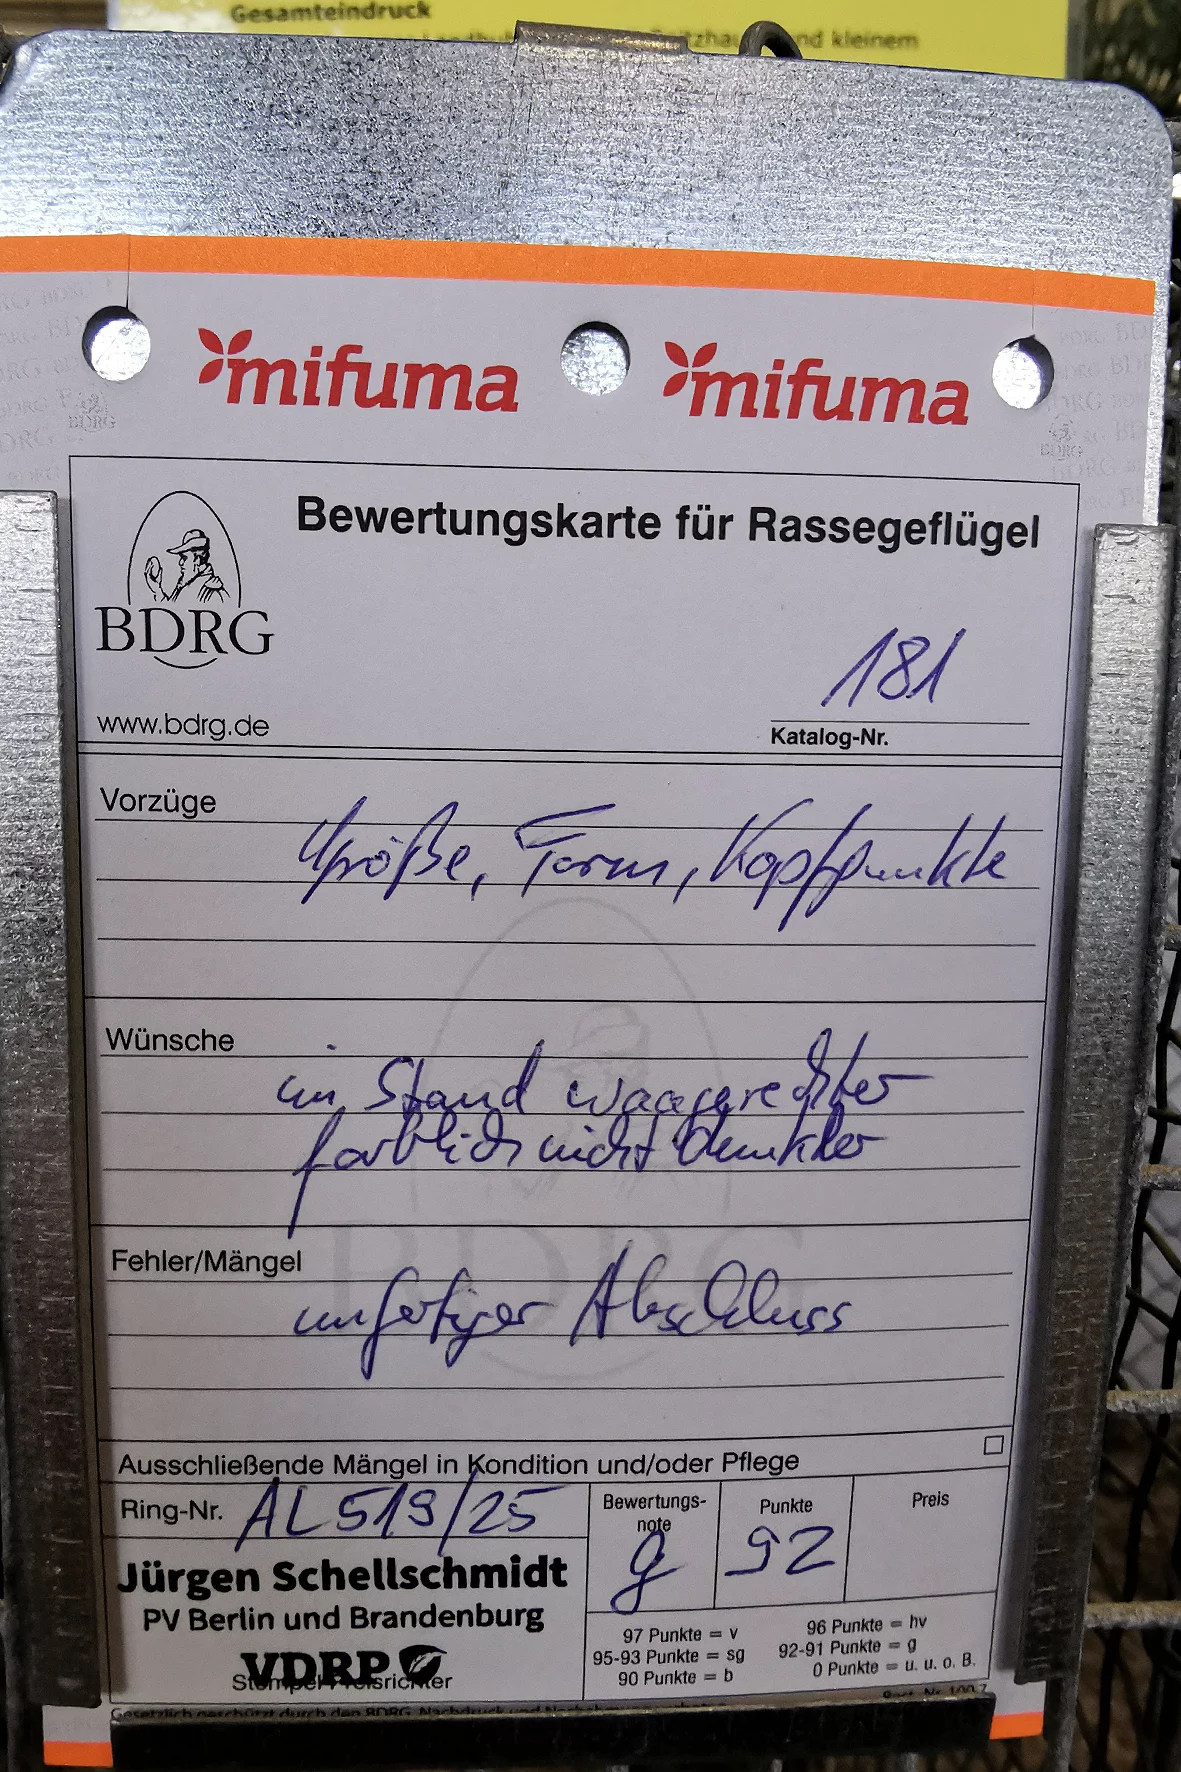 Gesamteindruck
und kleinem
mifuma mifuma
Bewertungskarte für Rassegeflügel
BDRG
www.bdrg.de
181
Katalog-Nr.
Vorzüge
Größe, Form, Kopfpunkte
Wünsche
im Stand waagerechter
farblich nicht dunkler
Fehler/Mängel
unfertiger Abschluss
Ausschließende Mängel in Kondition und/oder Pflege
Ring-Nr. AL 519/25
Bewertungs-
note
g
Punkte
92
Preis
Jürgen Schellschmidt
PV Berlin und Brandenburg
VDRP
Stempel Preisrichter
97 Punkte = v
96 Punkte = hv
95-93 Punkte = sg
92-91 Punkte = g
90 Punkte = b
0 Punkte = u. u. o. B.
Gesetzlich geschützt durch den BDRG.